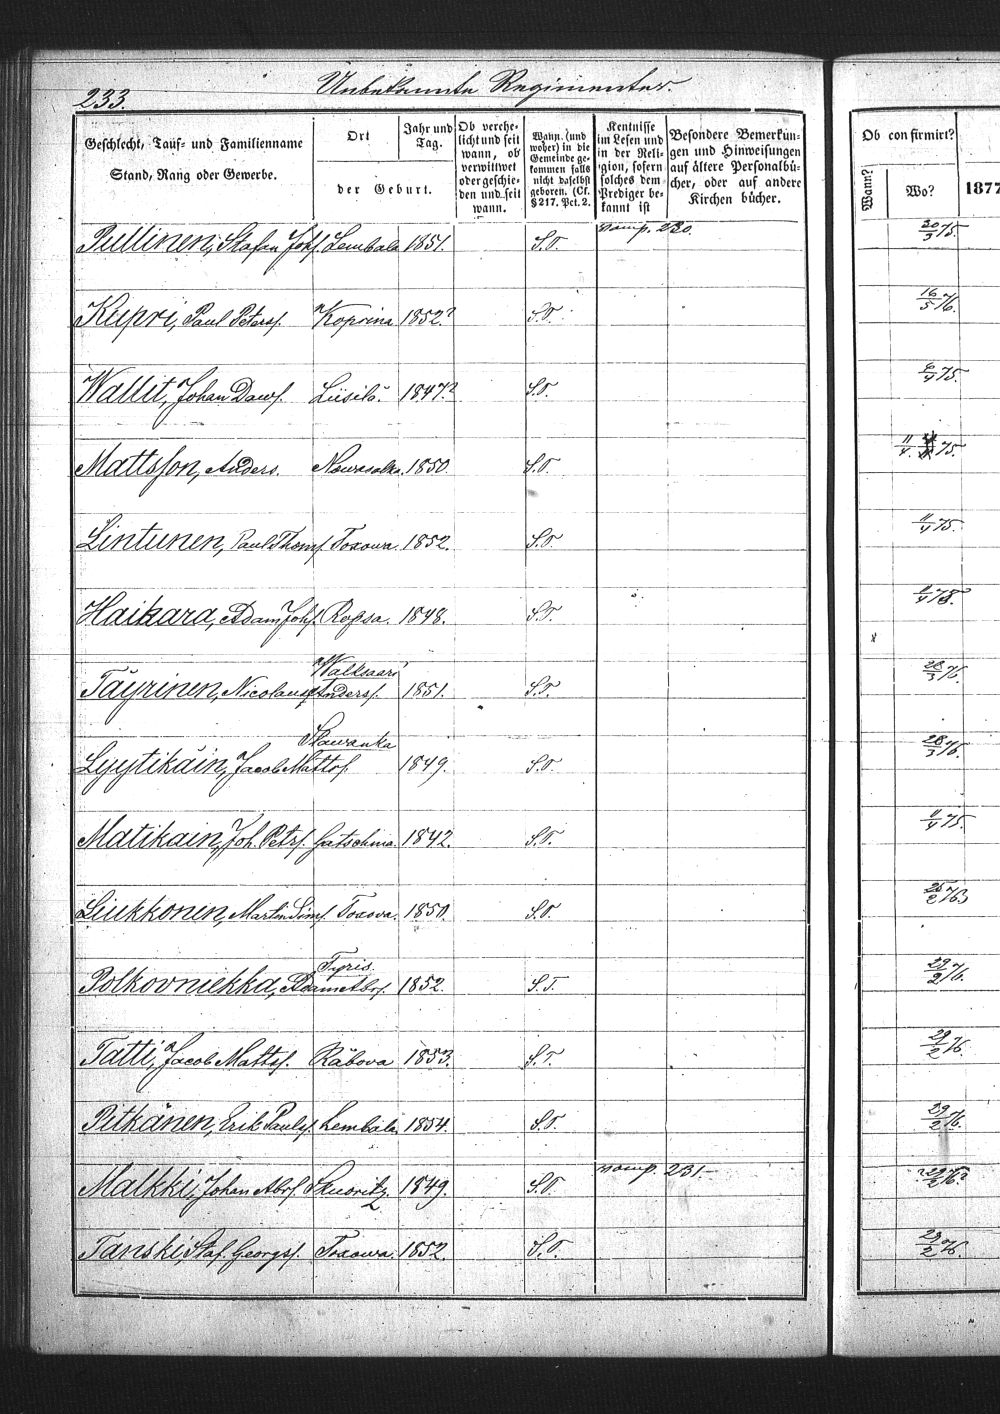 233.
Unbekannte Regimenter.
Geschlecht, Tauf- und Familienname
Stand, Rang oder Gewerbe.
Ort
der Geburt.
Jahr und
Tag.
Ob verehe-
licht und seit
wann, ob
verwittwet
oder geschie-
den und seit
wann.
Wann (und
woher) in die
Gemeinde ge-
kommen falls
nicht daselbst
geboren. (Cf.
§ 217. Pct. 2.
Kentnisse
im Lesen und
in der Reli-
gion, sofern
solches dem
Prediger be-
kannt ist
Besondere Bemerkun-
gen und Hinweisungen
auf ältere Personalbü-
cher, oder auf andere
Kirchen bücher.
Ob confirmirt?
Wann?
Wo?
1877
Pullinen, Stafan Johs. Lembala 1851. S.T. romp. 230. 30/3 75.
Kupri, Paul Peterss. Koprina 1852? S.T. 16/5 76.
Wallit, Johan Daws. Liisilä. 1847? S.T. 75.
Mattsson, Anders. 1850 S.T. 11/4. 75.
Lintunen, Paul Thoms. Toxowa. 1852. S.T. 11/4 75.
Haikara, Adam Johs. Ropsa. 1848. S.T.
Walksaari
Täyrinen, Nicolaus Anderss. 1851. S.T. 28/3 76.
Slawanka
Lyytikäin, Jacob Mattss. 1849. S.T. 28/3 76.
Matikain, Joh. Petrs. Gatschina. 1842. S.T. 11/4 75.
Liukkonen, Martin Sims. Toxova. 1850. S.T. 25/2 76
Tyris
Polkovniekka, Adam Abrs. 1852. S.T. 29/2 76.
Tatti, Jacob Mattss. Räbova 1853. S.T. 29/2 76.
Pitkänen, Erik Pauls. Lembala 1854. S.T. 29/2 76.
Malkki, Johan Abrs. Skuoritz 1849. S.T. romp. 231. ?29/2 76?
Tanski, Staf. Georgss. Toxowa. 1852. S.T. 29/2 76.